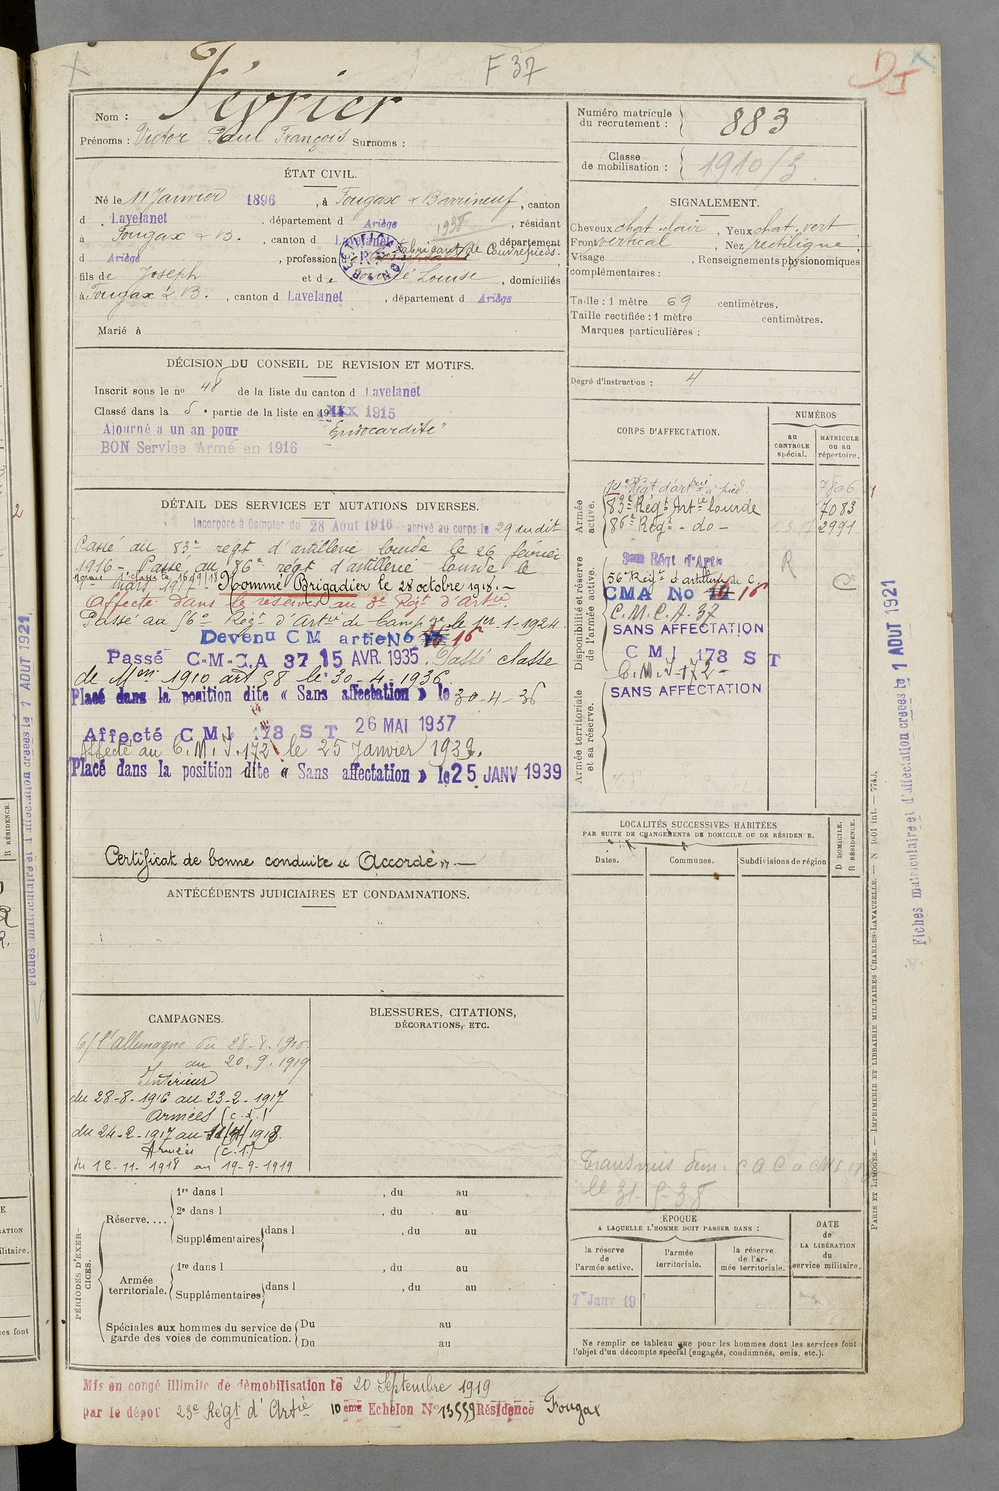 F 37
Nom : Février
Prénoms : Victor Paul François Surnoms :
ÉTAT CIVIL.
Né le 11 Janvier 1896, à Fougax & Barrineuf, canton
d Lavelanet, département d Ariège, résidant
à Fougax & B., canton d Lavelanet 1938 département
d Ariège, profession d Fabricant de Couvrepieds.
fils de Joseph et de Louise, domiciliés
à Fougax & B., canton d Lavelanet, département d Ariège
Marié à
DÉCISION DU CONSEIL DE REVISION ET MOTIFS.
Inscrit sous le nº 48 de la liste du canton d Lavelanet
Classé dans la 5e partie de la liste en 1915
Ajourné a un an pour "Endocardite"
BON Service Armé en 1916
DÉTAIL DES SERVICES ET MUTATIONS DIVERSES.
Incorporé à Compter du 28 Aout 1916 arrivé au corps le 29 au dit
Passé au 83e regt d'artillerie lourde le 26 février
1916 - Passé au 86e regt d'artillerie lourde le
1er mars 1917. Nommé 1e classe le 16/9/18 Nommé Brigadier le 28 octobre 1918. -
Affecté dans la réserve au 3e Régt d'Artie.
Passé au 56e Régt d'Artie de Camp gne le 1er-1-1924
Devenu C M artie No 16
Passé C-M-C.A 37 15 AVR. 1935. Passé classe
de Mon 1910 art 58 le 30-4-1936.
Placé dans la position dite « Sans affectation » le 30-4-36
Affecté C M I 178 S T 26 MAI 1937
Affecté au C.M.I. 172 le 25 Janvier 1939.
Placé dans la position dite « Sans affectation » le 25 JANV 1939
Certificat de bonne conduite « Accordé ». —
ANTÉCÉDENTS JUDICIAIRES ET CONDAMNATIONS.
CAMPAGNES.
C/ l'Allemagne du 28-8-1916
au 20.9.1919
Intérieur
du 28-8-1916 au 23-2-1917
Armées (C.d.)
du 24-2-1917 au 11/11/1918.
Armées (C.S.)
du 12.11.1918 au 19-9-1919
BLESSURES, CITATIONS,
DÉCORATIONS, ETC.
PÉRIODES D'EXERCICES.
Réserve....
1re dans l , du au
2e dans l , du au
Supplémentaires dans l , du au
Armée territoriale.
1re dans l , du au
Supplémentaires dans l , du au
Spéciales aux hommes du service de garde des voies de communication.
Du au
Du au
Mis en congé illimité de démobilisation le 20 Septembre 1919
par le dépot 23e Régt d'Artie 10 eme Echelon No 13559 Résidence Fougax
Numéro matricule
du recrutement : 883
Classe
de mobilisation : 1910/3
SIGNALEMENT.
Cheveux chat clair, Yeux chat. vert
Front vertical, Nez rectiligne,
Visage , Renseignements physionomiques
complémentaires :
Taille : 1 mètre 69 centimètres.
Taille rectifiée : 1 mètre centimètres.
Marques particulières :
Degré d'instruction : 4
CORPS D'AFFECTATION.
NUMÉROS
AU CONTRÔLE spécial.
MATRICULE OU AU répertoire.
Armée active.
10e Régt d'artrie à pied. 7806
83e Régt Artie lourde 7083
86e Régt - do - 2991
Disponibilité et réserve de l'armée active.
56e Régt d'artillerie de C.
CMA No 16
C.M.C.A-37
SANS AFFECTATION
C M I 178 S T
C.M.I-172-
SANS AFFECTATION
R
C
Armée territoriale et sa réserve.
LOCALITÉS SUCCESSIVES HABITÉES
PAR SUITE DE CHANGEMENTS DE DOMICILE OU DE RÉSIDENCE.
Dates.
Communes.
Subdivisions de région
D DOMICILE.
R RÉSIDENCE.
le 31-5-38
ÉPOQUE
A LAQUELLE L'HOMME DOIT PASSER DANS :
la réserve de l'armée active.
l'armée territoriale.
la réserve de l'armée territoriale.
DATE de LA LIBÉRATION du service militaire.
7 Janv 19
Ne remplir ce tableau que pour les hommes dont les services font
l'objet d'un décompte spécial (engagés, condamnés, omis, etc.).
PARIS ET LIMOGES. — IMPRIMERIE ET LIBRAIRIE MILITAIRES CHARLES-LAVAUZELLE. — N 1001 int. — 7743.
Fiches matriculaire et d'affectation créées le 1 AOUT 1921
Fiches matriculaire et d'affectation créées le 1 AOUT 1921